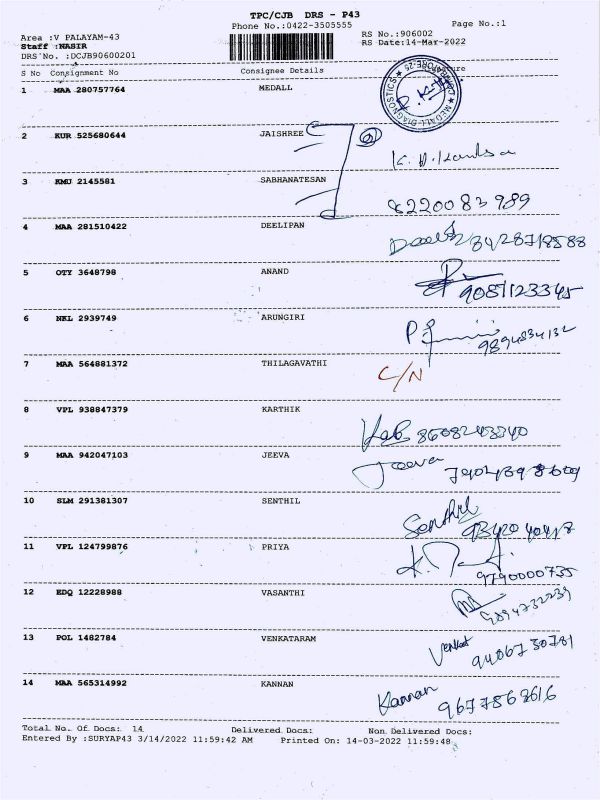 TPC/CJB DRS - P43
Phone No.:0422-3505555 Page No.:1
Area :V PALAYAM-43 RS No.:906002
Staff :NASIR RS Date:14-Mar-2022
DRS No. :DCJB90600201
S No Consignment No Consignee Details
1 MAA 280757764 MEDALL
MEDALL DIAGNOSTICS COIMBATORE-25
2 KUR 525680644 JAISHREE
3 KMU 2145581 SABHANATESAN
8220083989
4 MAA 281510422 DEELIPAN
5 OTY 3648798 ANAND
9087123345
6 NKL 2939749 ARUNGIRI
9894834132
7 MAA 564881372 THILAGAVATHI C/N
8 VPL 938847379 KARTHIK
8608243340
9 MAA 942047103 JEEVA
Jeeva
10 SLM 291381307 SENTHIL
Senthil
11 VPL 124799876 PRIYA
9790000735
12 EDQ 12228988 VASANTHI
9894732239
13 POL 1482784 VENKATARAM
Venkat 9406730781
14 MAA 565314992 KANNAN
Kannan 9677862616
Total No. Of Docs: 14 Delivered Docs: Non Delivered Docs:
Entered By :SURYAP43 3/14/2022 11:59:42 AM Printed On: 14-03-2022 11:59:48